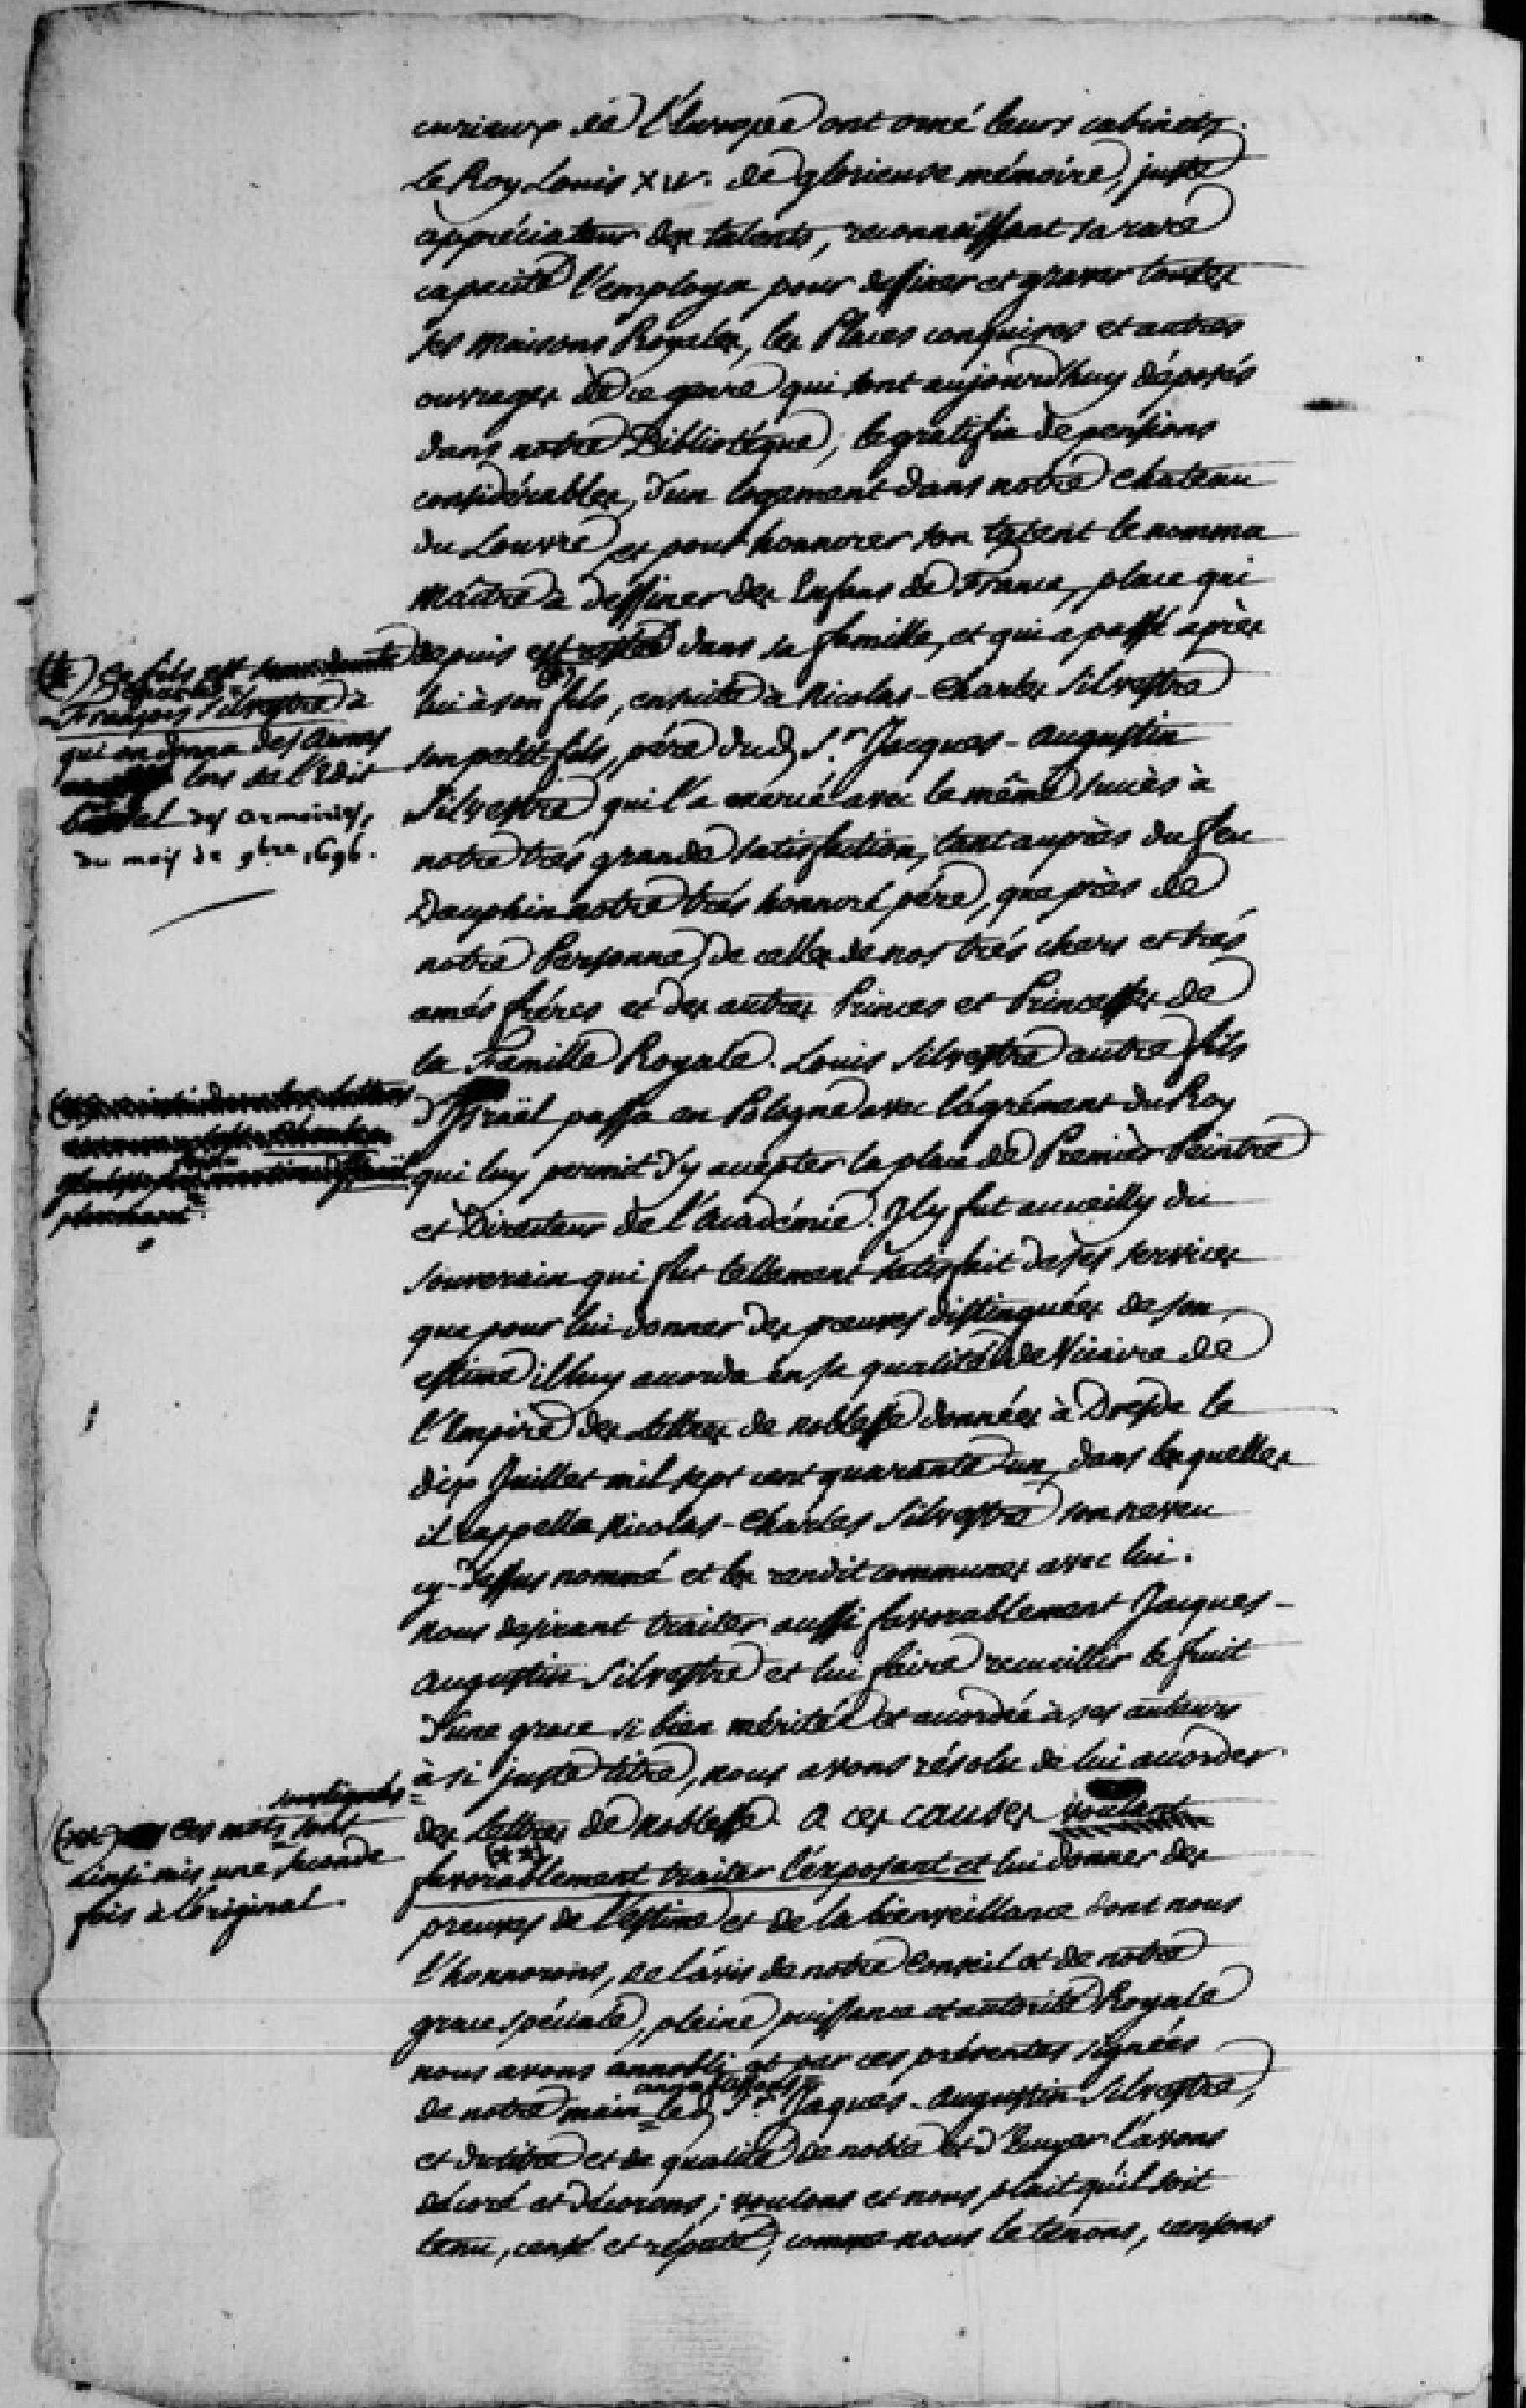 curieux de l'Europe ont orné leurs cabinets.
Le Roy Louis XIV. de glorieuse mémoire, juste
appréciateur des talents, reconnaissant sa rare
capacité l'employa pour dessiner et graver toutes
ses Maisons Royales, les Places conquises et autres
ouvrages de ce genre qui sont aujourd'huy déposés
dans notre Bibliotéque, le gratifia de pensions
considérables, d'un logement dans notre Chateau
du Louvre et pour honnorer son talent le nomma
Maître à dessiner des Enfans de France, place qui
depuis est restée dans sa famille, et qui a passé après
lui à son fils, ensuite à Nicolas-Charles Silvestre
son petit-fils, père dud. S.r Jacques-Augustin
Silvestre qui l'a exercé avec le même succès à
notre très grande satisfaction, tant auprès du feu
Dauphin notre très honnoré père, que près de
notre Personne, de celles de nos très chers et très
amés frères et des autres Princes et Princesses de
la Famille Royale. Louis Silvestre autre fils
d'Israël passa en Pologne avec l'agrément du Roy
qui luy permit d'y accepter la place de Premier Peintre
et Directeur de l'Académie. Il y fut accueilly du
Souverain qui fut tellement satisfait de ses services
que pour lui donner des preuves distinguées de son
estime il luy accorda en sa qualité de Vicaire de
l'Empire des Lettres de noblesse données à Dresde le
dix Juillet mil sept cent quarante un, dans lesquelles
il rappella Nicolas-Charles Silvestre son neveu
cy-dessus nommé et les rendit communes avec lui.
Nous desirant traiter aussi favorablement Jacques-
Augustin Silvestre et lui faire recueillir le fruit
d'une grace si bien méritée et accordée à ses auteurs
à si juste titre, nous avons résolu de lui accorder
des Lettres de noblesse. A ces causes voulant
(**)
favorablement traiter l'exposant et lui donner des
preuves de l'estime et de la bienveillance dont nous
l'honnorons, de l'avis de notre Conseil et de notre
grace spéciale, pleine puissance et autorité Royale
nous avons annobli et par ces présentes signées
de notre main annoblissons led. S.r Jaques-Augustin Silvestre,
et du titre et de qualité de noble et d'Ecuyer l'avons
décoré et décorons; voulons et nous plait qu'il soit
tenu, censé et réputé, comme nous le tenons, censons
(*) Ce fils est sans doute
Charles
François Silvestre à
qui on donna des Armes
lors de l'Edit
des armoiries,
du mois de 9bre 1696.
(**) ces mots soulignés sont
ainsi mis une seconde
fois à l'original.